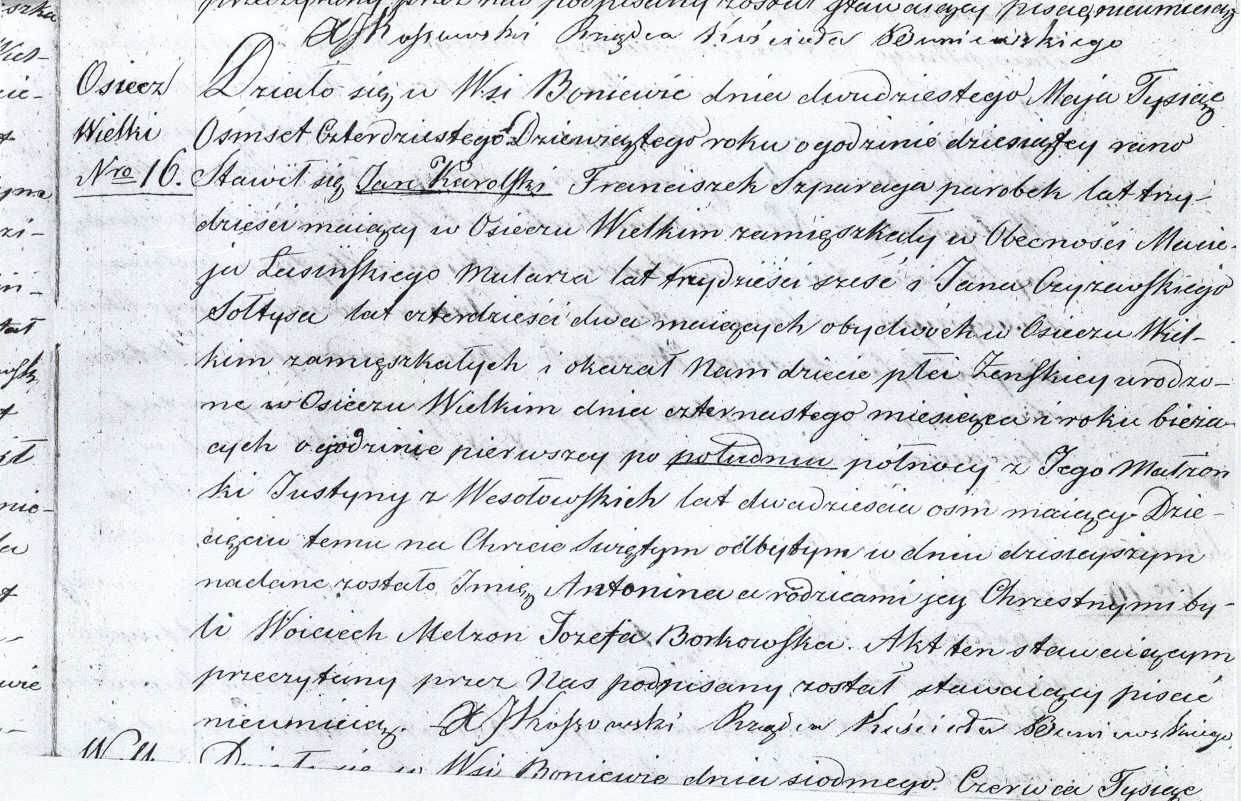 przeczytany przez nas podpisany został stawaiący pisać nieumieiący
XJKossowski Rządca Kościoła Boniewskiego
Osiecz
Wielki
Nro 16.
Działo się w Wsi Boniewie dnia dwudziestego Maja Tysiąc
Osmset Czterdziestego Dziewiątego roku o godzinie dziesiątey rano
Stawił się Jan Karolski Franciszek Szparaga parobek lat trzy-
dzieści maiący w Osieczu Wielkim zamięszkały w Obecności Macie-
ja Łasińskiego Mularza lat trzydzieści sześć i Jana Czyżewskiego
Sołtysa lat czterdzieści dwa maiących obydwóch w Osieczu Wiel-
kim zamięszkałych i okazał Nam dziecie płci Zeńskiey urodzo-
ne w Osieczu Wielkim dnia czternastego miesiąca i roku bieża-
cych o godzinie pierwszey po południu północy z Jego Małżon
ki Justyny z Wesołowskich lat dwadzieścia osm maiący. Dzie-
cięciu temu na Chrzcie Swiętym odbytym w dniu dzisieyszym
nadane zostało Imię Antonina a rodzicami jey Chrzestnymi by-
li Woiciech Melzon Jozefa Borkowska. Akt ten stawaiącym
przeczytany przez Nas podpisany został stawaiący pisać
nieumieią. XJKossowski Rządca Kościoła Boniewskiego
Działo się w Wsi Boniewie dnia siodmego Czerwca Tysiąc